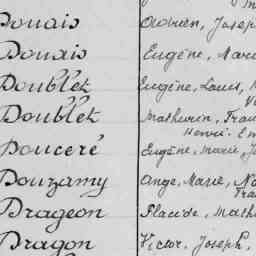 Douais Adrien, Joseph
Douais Eugène, Marie
Doublet Eugène, Louis, M
Doublet Mathurin, Fran
Henri. Em
Douceré Eugène, Marie, J
Douzamy Ange, Marie, No
Fra
Drageon Placide, Math
Dragon Victor, Joseph,